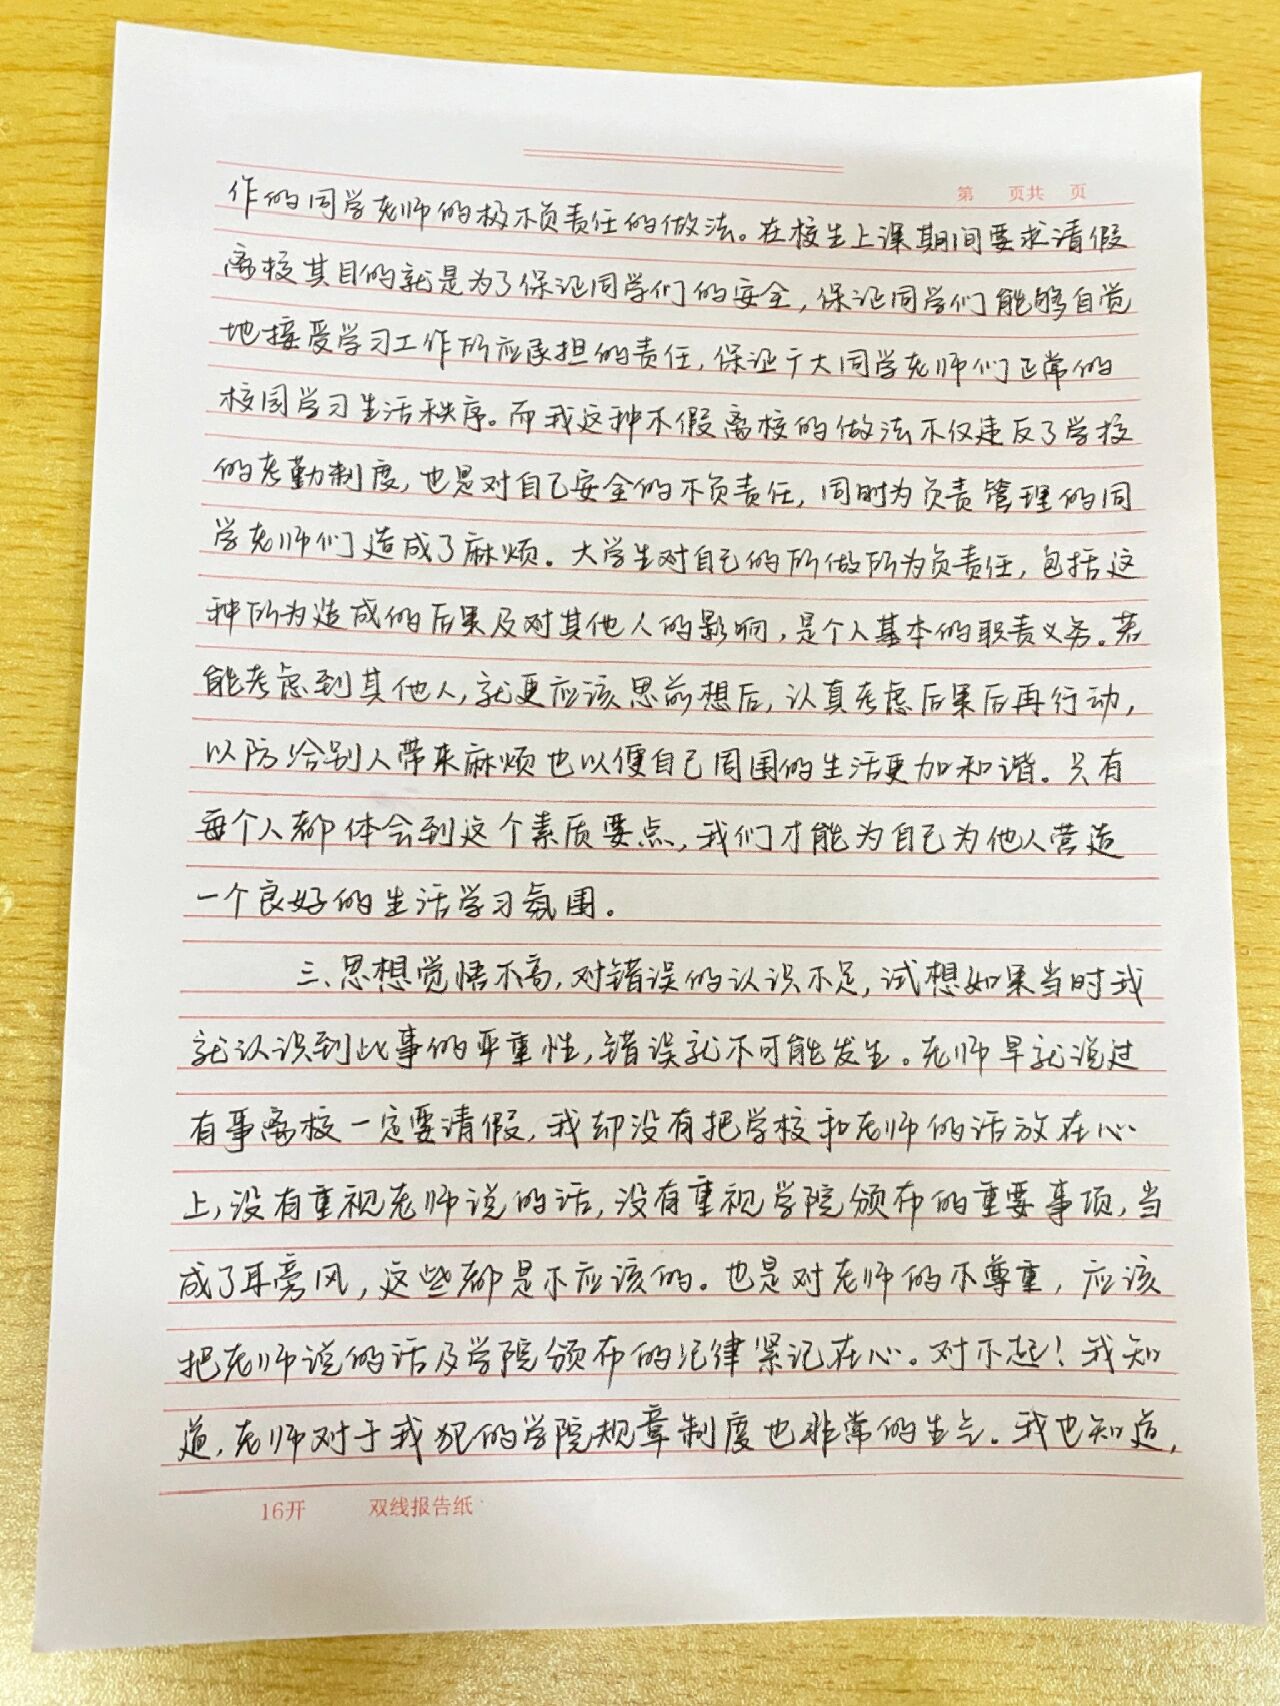 第 页共 页
作的同学老师的极不负责任的做法。在校生上课期间要求请假
离校其目的就是为了保证同学们的安全,保证同学们能够自觉
地接受学习工作所应承担的责任,保证广大同学老师们正常的
校园学习生活秩序。而我这种不假离校的做法不仅违反了学校
的考勤制度,也是对自己安全的不负责任,同时为负责管理的同
学老师们造成了麻烦。大学生对自己的所做所为负责任,包括这
种所为造成的后果及对其他人的影响,是个人基本的职责义务。若
能考虑到其他人,就更应该思前想后,认真考虑后果后再行动,
以防给别人带来麻烦也以便自己周围的生活更加和谐。只有
每个人都体会到这个素质要点,我们才能为自己为他人营造
一个良好的生活学习氛围。
三、思想觉悟不高,对错误的认识不足,试想如果当时我
就认识到此事的严重性,错误就不可能发生。老师早就说过
有事离校一定要请假,我却没有把学校和老师的话放在心
上,没有重视老师说的话,没有重视学院颁布的重要事项,当
成了耳旁风,这些都是不应该的。也是对老师的不尊重,应该
把老师说的话及学院颁布的纪律紧记在心。对不起!我知
道,老师对于我犯的学院规章制度也非常的生气。我也知道,
16开 双线报告纸